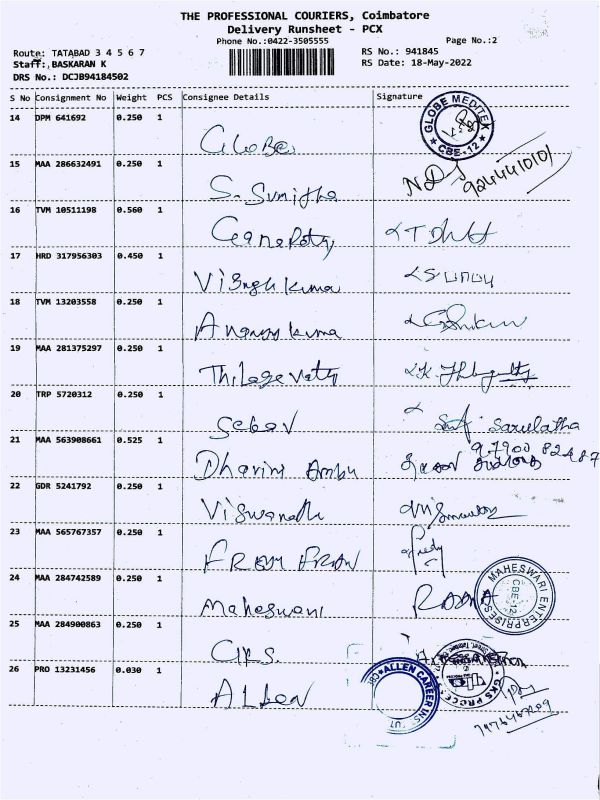 THE PROFESSIONAL COURIERS, Coimbatore
Delivery Runsheet - PCX
Phone No.:0422-3505555
Page No.:2
Route: TATABAD 3 4 5 6 7
RS No.: 941845
Staff: BASKARAN K
RS Date: 18-May-2022
DRS No.: DCJB94184502
S No Consignment No Weight PCS Consignee Details Signature
14 DPM 641692 0.250 1 Globe GLOBE MEDITEK CBE-12
15 MAA 286632491 0.250 1 S. Sumitha 9244410101
16 TVM 10511198 0.560 1 Ganapathy
17 HRD 317956303 0.450 1 Vignesh kumar
18 TVM 13203558 0.250 1 Anand kumar
19 MAA 281375297 0.250 1 Thilagavathy
20 TRP 5720312 0.250 1 Sarulatha
21 MAA 563908661 0.525 1 Dharini Ambu
22 GDR 5241792 0.250 1 Viswanath
23 MAA 565767357 0.250 1
24 MAA 284742589 0.250 1 Maheswari MAHESWARI ENTERPRISES CBE-12
25 MAA 284900863 0.250 1 GKS GKS PROCE
26 PRO 13231456 0.030 1 ALLEN ALLEN CAREER INS